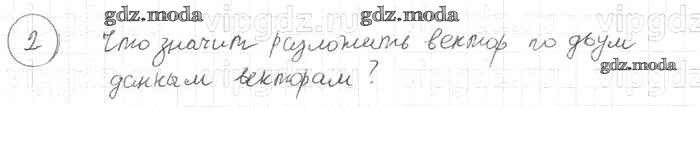 gdz.moda gdz.moda
2 Что значит разложить вектор по двум
gdz.moda
данным векторам?